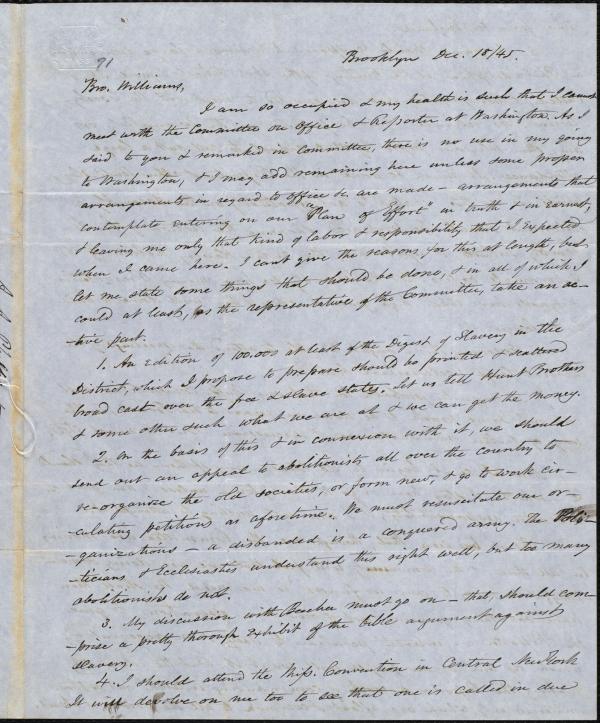 71
Brooklyn Dec. 18/45.
Bro. Williams,
I am so occupied & my health is such that I cannot
meet with the Committee on Office & Reporter at Washington. As I
said to you & remarked in committee, there is no use in my going
to Washington, & I may add remaining here unless some proper
arrangements in regard to office &c. are made – arrangements that
contemplate entering on our "Plan of Effort" in truth & in earnest,
& leaving me only that kind of labor & responsibility that I expected
when I came here. I can't give the reasons for this at length, but
let me state some things that should be done, & in all of which I
could at least, as the representative of the Committee, take an ac-
-tive part.
1. An edition of 100,000 at least of the Digest of Slavery in the
District, which I propose to prepare should be printed & scattered
broad cast over the free & slave states. Let us tell Hunt Brothers
& some other such what we are at & we can get the money.
2. On the basis of this & in connexion with it, we should
send out an appeal to abolitionists all over the country to
re-organize the old societies, or form new, & go to work cir-
-culating petitions as aforetime. We must resuscitate our or-
-ganizations – a disbanded is a conquered army. The Poli-
-ticians & Ecclesiastics understand this right well, but too many
abolitionists do not.
3. My discussion with Beecher must go on – that, should com-
-prise a pretty thorough exhibit of the bible argument against
slavery.
4. I should attend the Miss. Convention in Central New York
It will devolve on me too to see that one is called in due